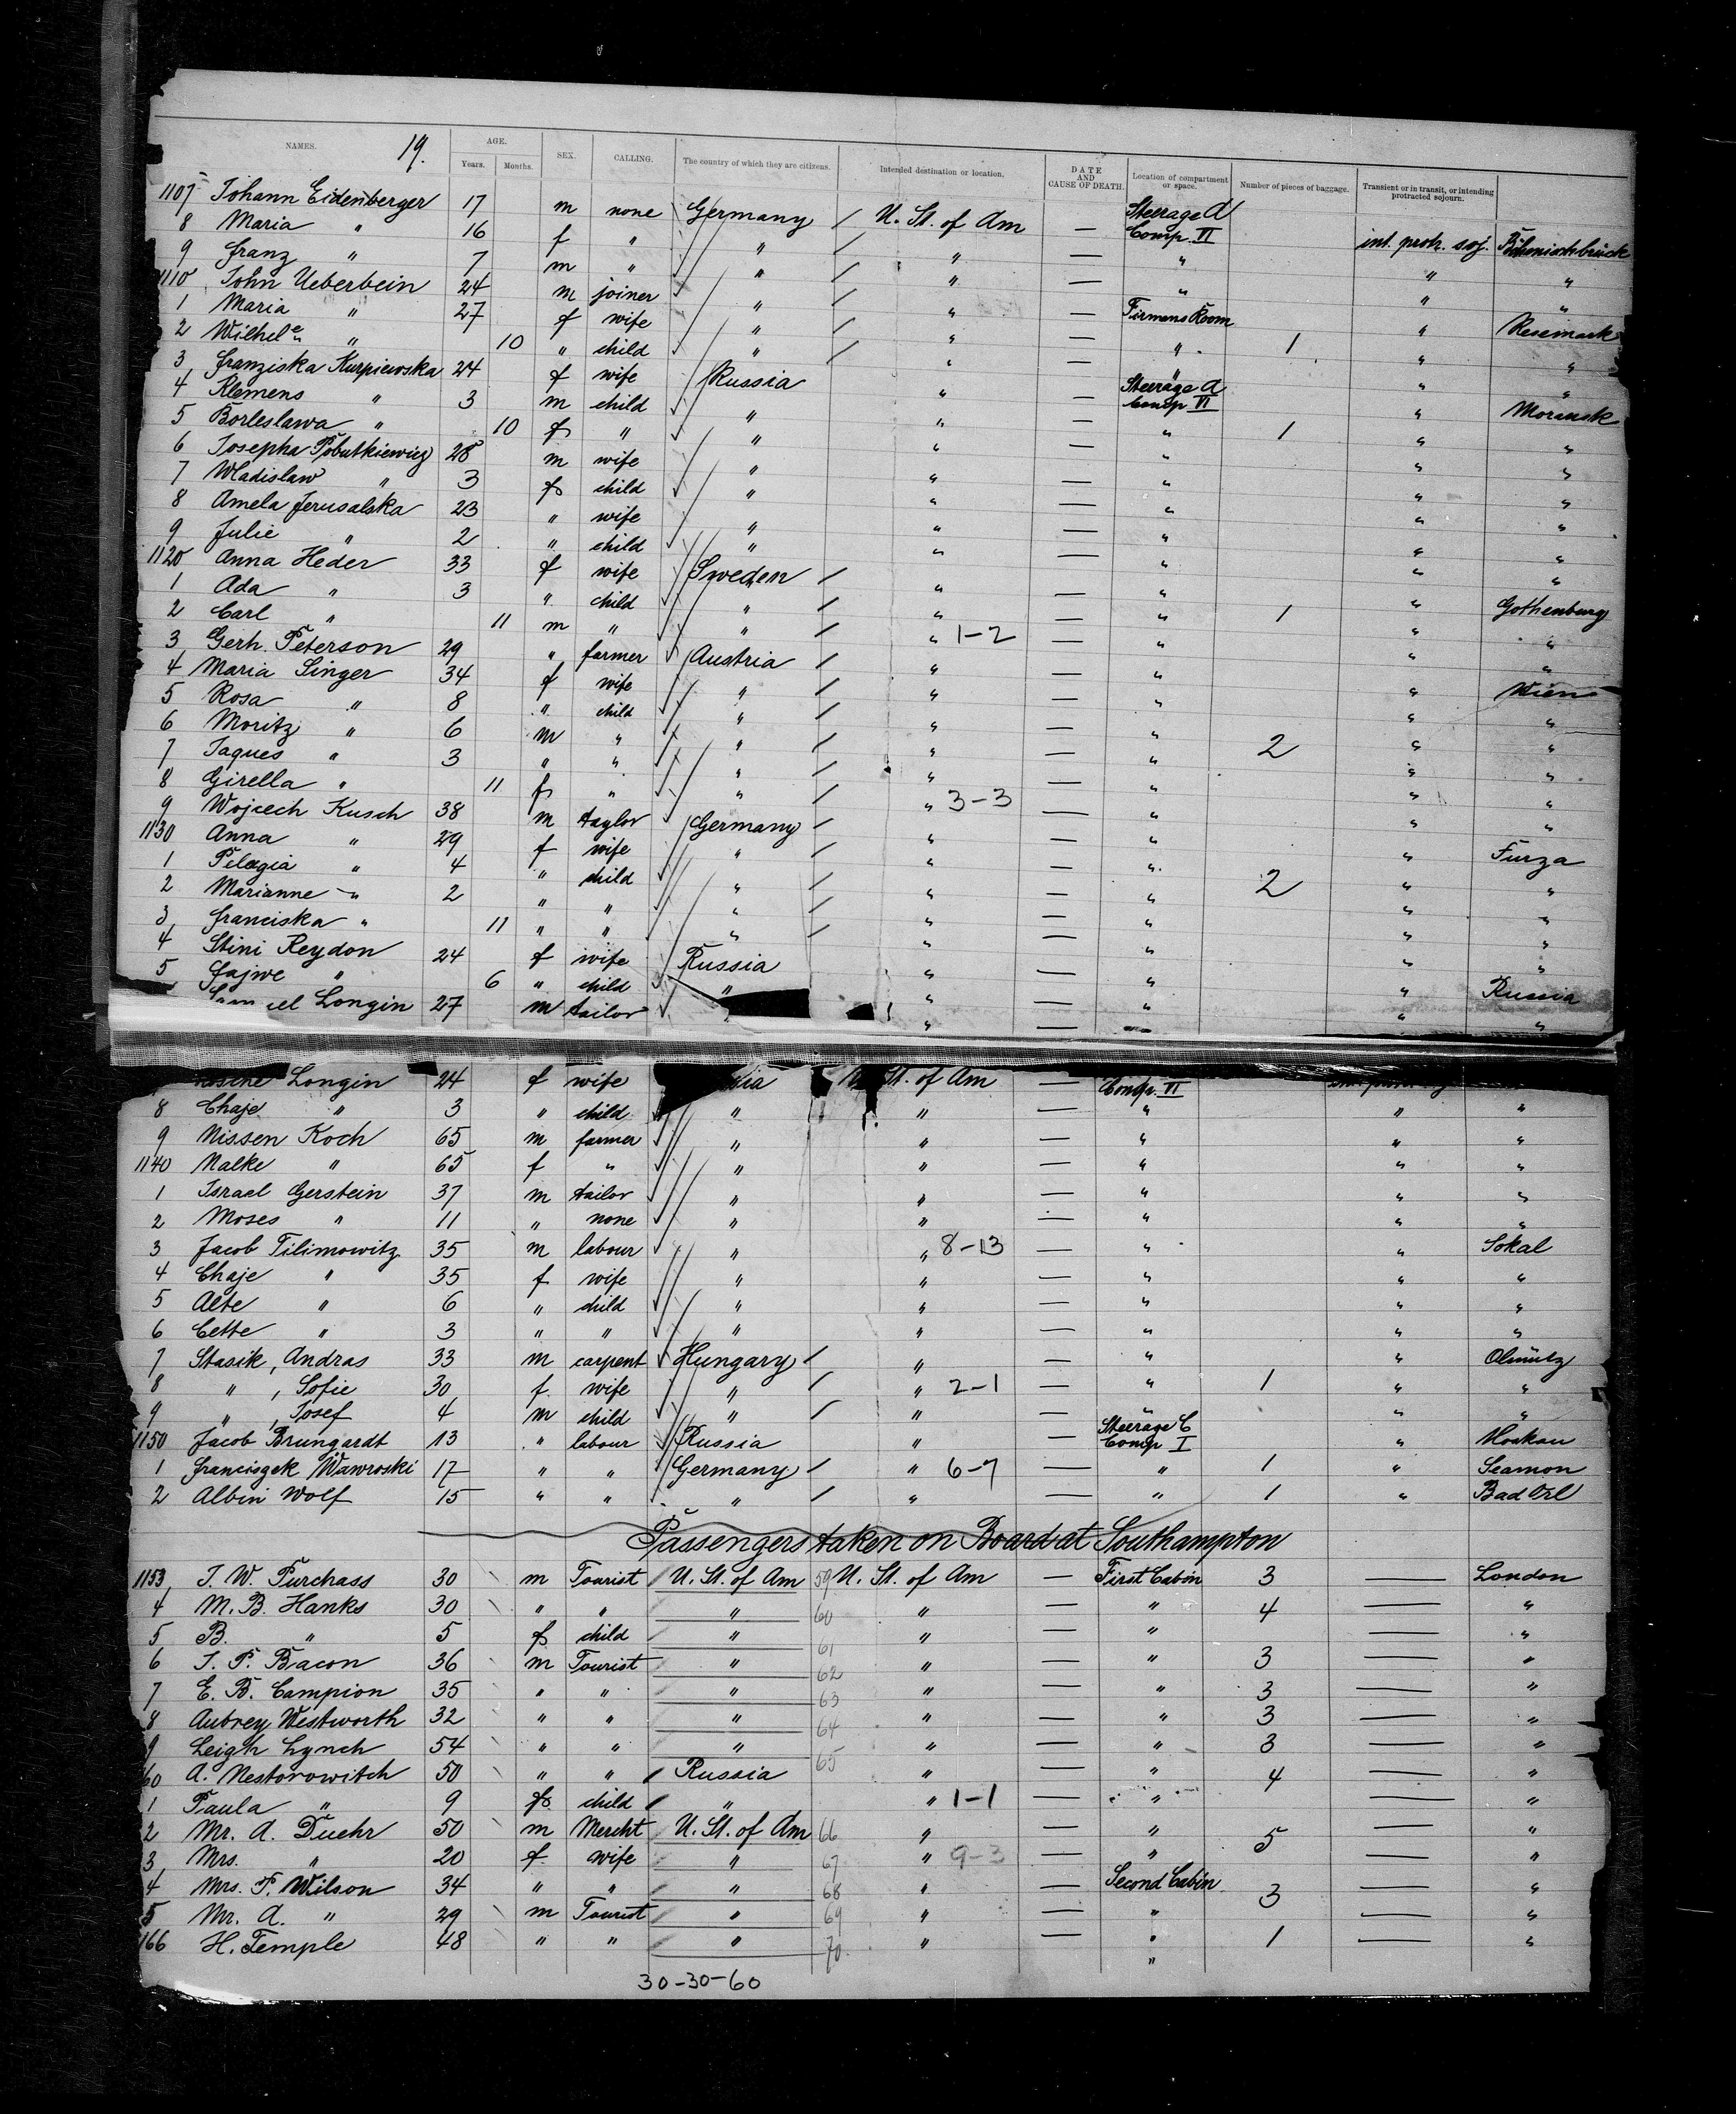 NAMES. 19. AGE. Years. Months. SEX. CALLING. The country of which they are citizens. Intended destination or location. DATE AND CAUSE OF DEATH. Location of compartment or space. Number of pieces of baggage. Transient or in transit, or intending protracted sojourn.
1107 Johann Eidenberger 17 m none Germany / U. St. of Am — Steerage A Comp. VI int. protr. soj. Böhmischbruck
8 Maria " 16 f " " / " — " " "
9 Franz " 7 m " " / " — " " "
1110 John Ueberbein 24 m joiner " / " — Firmens Room " Resemark
1 Maria " 27 f wife " / " — " 1 " "
2 Wilhel e " 10 " child " / " — " " "
3 Franziska Kurpiewska 24 f wife Russia " — Steerage A Comp VI " Moransk
4 Klemens " 3 m child " " — " 1 " "
5 Borleslawa " 10 f " " " — " " "
6 Josepha Pobutkiewicz 28 m wife " " — " " "
7 Wladislaw " 3 f child " " — " " "
8 Amela Jerusalska 23 " wife " " — " " "
9 Julie " 2 " child " " — " " "
1120 Anna Heder 33 f wife Sweden / " — " 1 " Gothenburg
1 Ada " 3 " child " / " — " " "
2 Carl " 11 m " " / " 1-2 — " " "
3 Gerh. Peterson 29 " farmer Austria / " — " " Wien
4 Maria Singer 34 f wife " / " — " " "
5 Rosa " 8 " child " / " — " 2 " "
6 Moritz " 6 m " " / " — " " "
7 Jaques " 3 " " " / " — " " "
8 Girella " 11 f " " / " 3-3 — " " "
9 Wojcech Kusch 38 m taylor Germany / " — " " Furza
1130 Anna " 29 f wife " / " — " 2 " "
1 Pelagia " 4 " child " / " — " " "
2 Marianne " 2 " " " / " — " " "
3 Franciska " 11 " " " / " — " " "
4 Stini Reydon 24 f wife Russia " — " " Russia
5 Fajwe " 6 " child " " — " " "
el Longin 27 m tailor "
Longin 24 f wife St. of Am — Comp. VI
8 Chaje " 3 " child " " — " " "
9 Nissen Koch 65 m farmer " " — " " "
1140 Malke " 65 f " " " — " " "
1 Israel Gerstein 37 m tailor " " — " " "
2 Moses " 11 " none " " — " " "
3 Jacob Filimowitz 35 m labour " " 8-13 — " " Sokal
4 Chaje " 35 f wife " " — " " "
5 Alte " 6 " child " " — " " "
6 Cette " 3 " " " " — " " "
7 Stasik, Andras 33 m carpent Hungary / " — " " Olmütz
8 " , Sofie 30 f wife " / " 2-1 — " 1 " "
9 " , Josef 4 m child " / " — " " "
1150 Jacob Brungardt 13 " labour Russia " — Steerage C Comp I " Moskau
1 Franciszek Wawroski 17 " " Germany / " 6-7 — " 1 " Seamon
2 Albin Wolf 15 " " " / " — " 1 " Bad Orl
Passengers taken on Board at Southampton
1153 J. W. Purchass 30 m Tourist U. St. of Am 59 U. St. of Am — First Cabin 3 — London
4 M. B. Hanks 30 " " " 60 " — " 4 — "
5 B. " 5 f child " 61 " — " — "
6 J. P. Bacon 36 m Tourist " 62 " — " 3 — "
7 E. B. Campion 35 " " " 63 " — " 3 — "
8 Aubrey Westworth 32 " " " 64 " — " 3 — "
9 Leigh Lynch 54 " " " 65 " — " 3 — "
60 A. Nestorowitch 50 " " Russia " — " 4 — "
1 Paula " 9 f child " " 1-1 — " — "
2 Mr. A. Duehr 50 m Mercht U. St. of Am 66 " — " 5 — "
3 Mrs. " 20 f wife " 67 " 9-3 — " — "
4 Mrs. P. Wilson 34 " " " 68 " — Second Cabin 3 — "
5 Mr. A. " 29 m Tourist " 69 " — " — "
166 H. Temple 48 " " " 70 " — " 1 — "
30-30-60